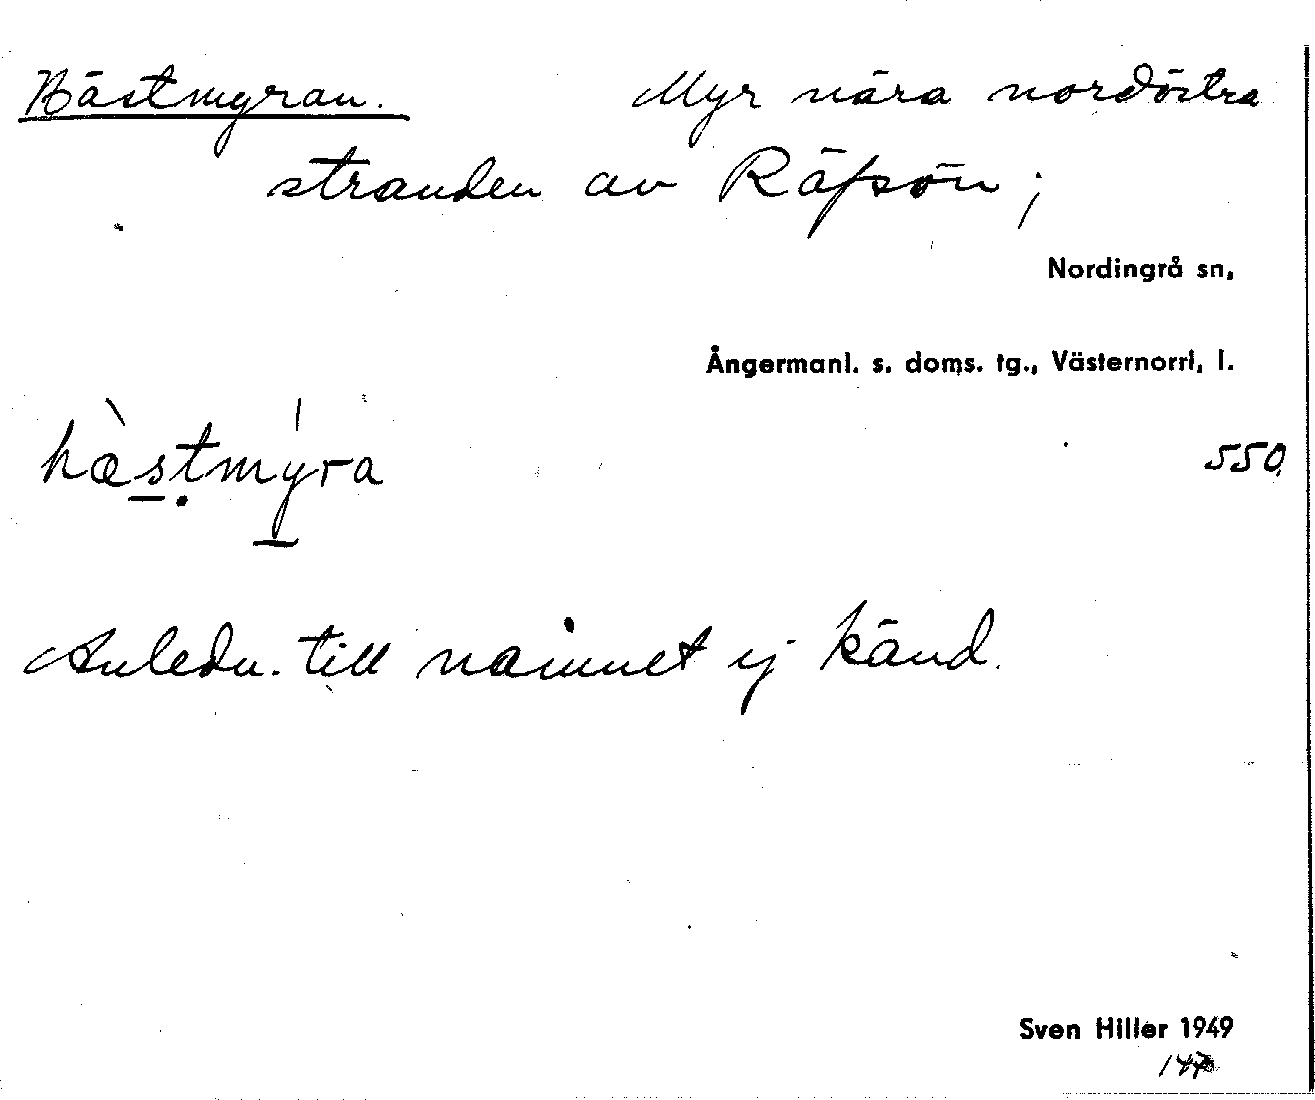 Hästmyran. Myr nära nordöstra
stranden av Räfsön;
Nordingrå sn,
Ångermanl. s. doms. tg., Västernorrl. l.
hæ̀stmýra
550.
Anledn. till namnet ej känd.
Sven Hiller 1949